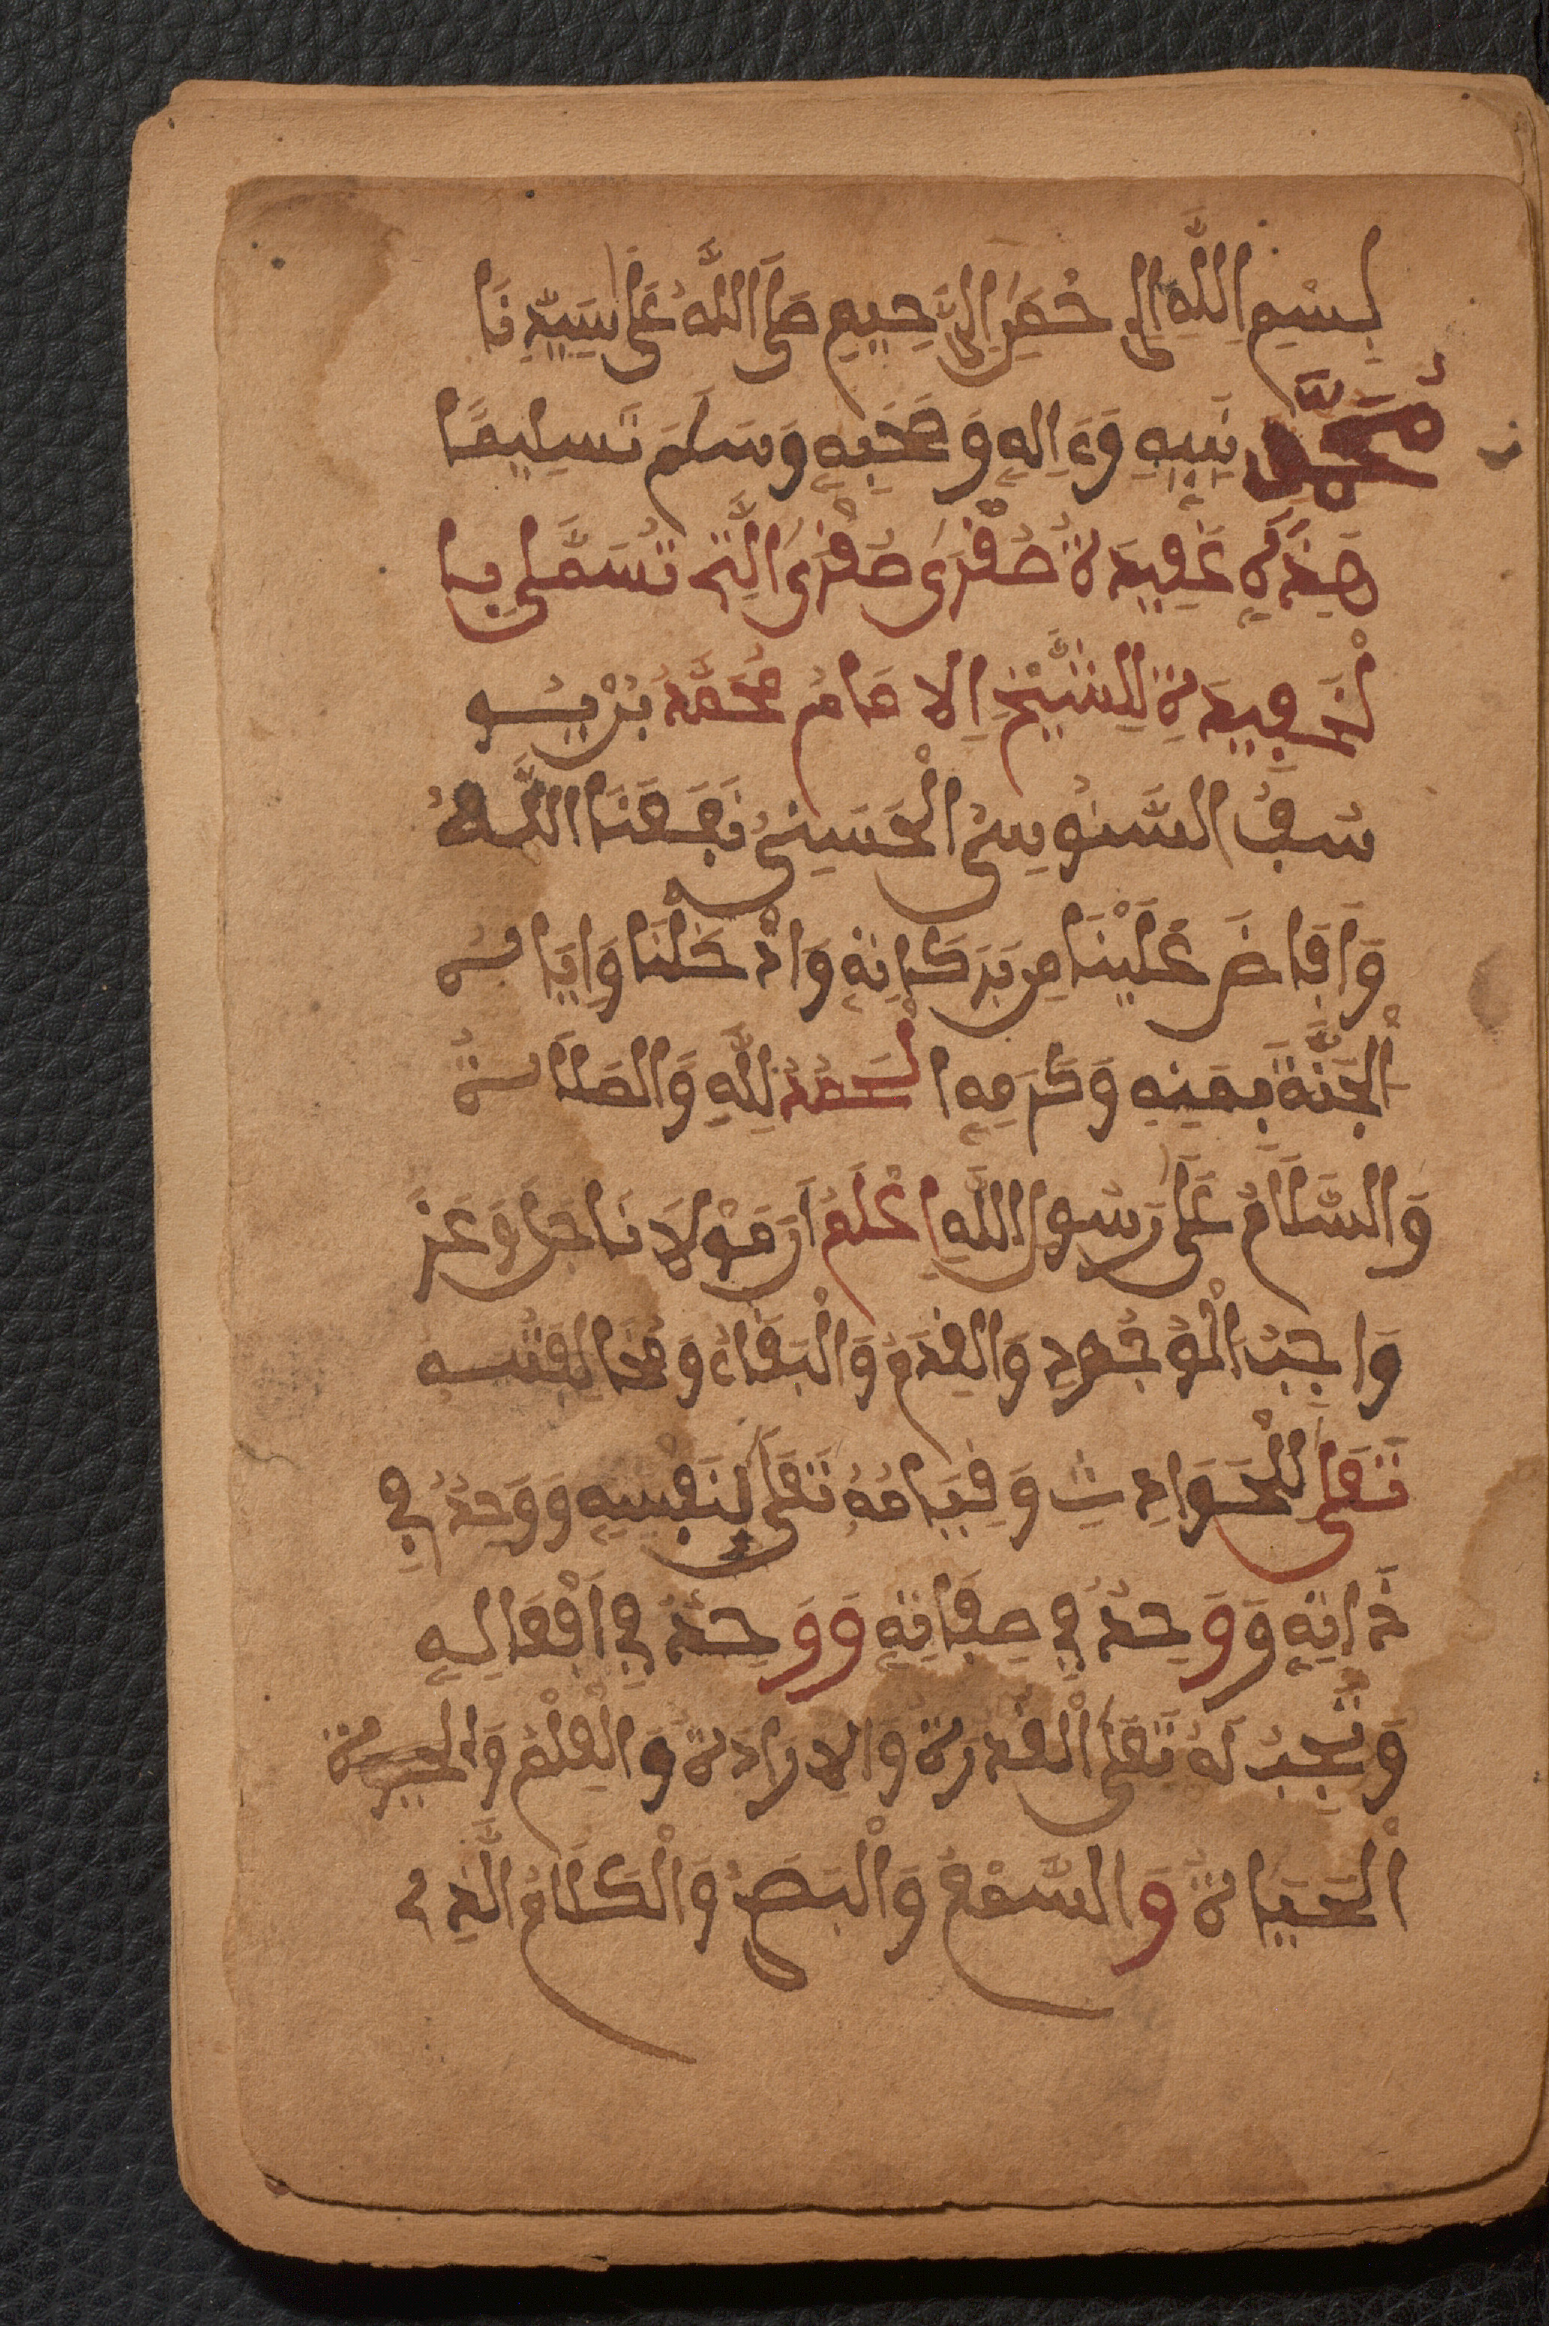 بِسْمِ اِللَّهِ اِلرَّحْمَٰنِ اِلرَّحِيمِ صَلَّى اللَّهُ عَلَى سَيِّدِنَا
مُحَمَّدٍ نَبِيِّهِ وَءَالِهِ وَصَحْبِهِ وَسَلَّمَ تَسْلِيمًا
هَذِهِ عَقِيدَةُ صُغْرَى صُغْرَى الَّتِي تُسَمَّى بِا
لْحَفِيدَةِ لِلشَّيْخِ اِلامَامُ مُحَمَّدُ بْنُ يُو
سُفُ السَّنُوسِيُّ الْحَسَنِيُّ نَفَعَنَا اللَّهُ
وَاَفَاضَ عَلَيْنَا مِن بَرَكَاتِهِ وَادْخَلَنَا وَاِيَّاهُ
الْجَنَّةَ بِمَنِّهِ وَكَرَمِهِ الْحَمْدُ لِلَّهِ وَالصَّلَاةُ
وَالسَّلَامُ عَلَى رَسُولِ اللَّهِ اِعْلَمُ اَن مَوْلَانَا جَلَّ وَعَزَّ
وَاجِبُ الْوُجُودِ وَالْقِدَمُ وَالْبَقَاءُ وَمُخَالَفَتُهُ
تَعَلَى لِلْحَوَادِثِ وَقِيَامُهُ تَعَلَى بِنَفْسِهِ وَوَحِدٌ فِي
ذَاتِهِ وَوَحِدٌ فِي صِفَاتِهِ وَوَحِدٌ فِي اَفْعَالِهِ
وَتَجِبُ لَهُ تَعَلَى الْقُدْرَةُ وَالِارَادَةُ وَالْعِلْمُ وَ
الْحَيَاةُ وَالسَّمْعُ وَالْبَصَرُ وَالْكَلَامُ الَّذِي